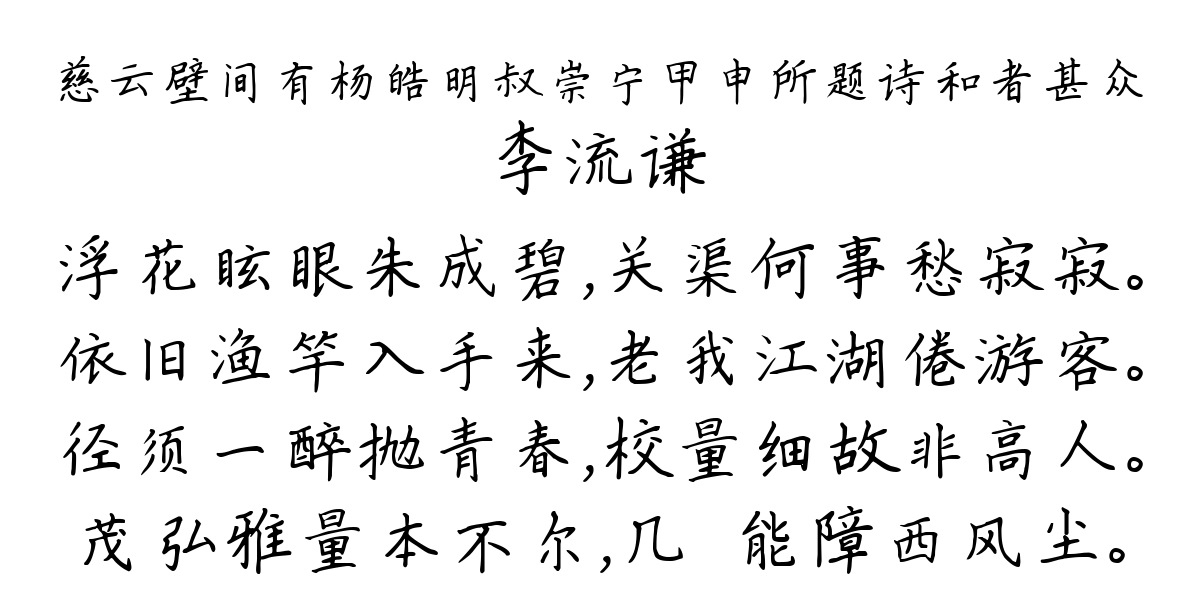 慈云壁间有杨皓明叔崇宁甲申所题诗和者甚众
李流谦
浮花眩眼朱成碧,关渠何事愁寂寂。
依旧渔竿入手来,老我江湖倦游客。
径须一醉抛青春,校量细故非高人。
茂弘雅量本不尔,几 能障西风尘。